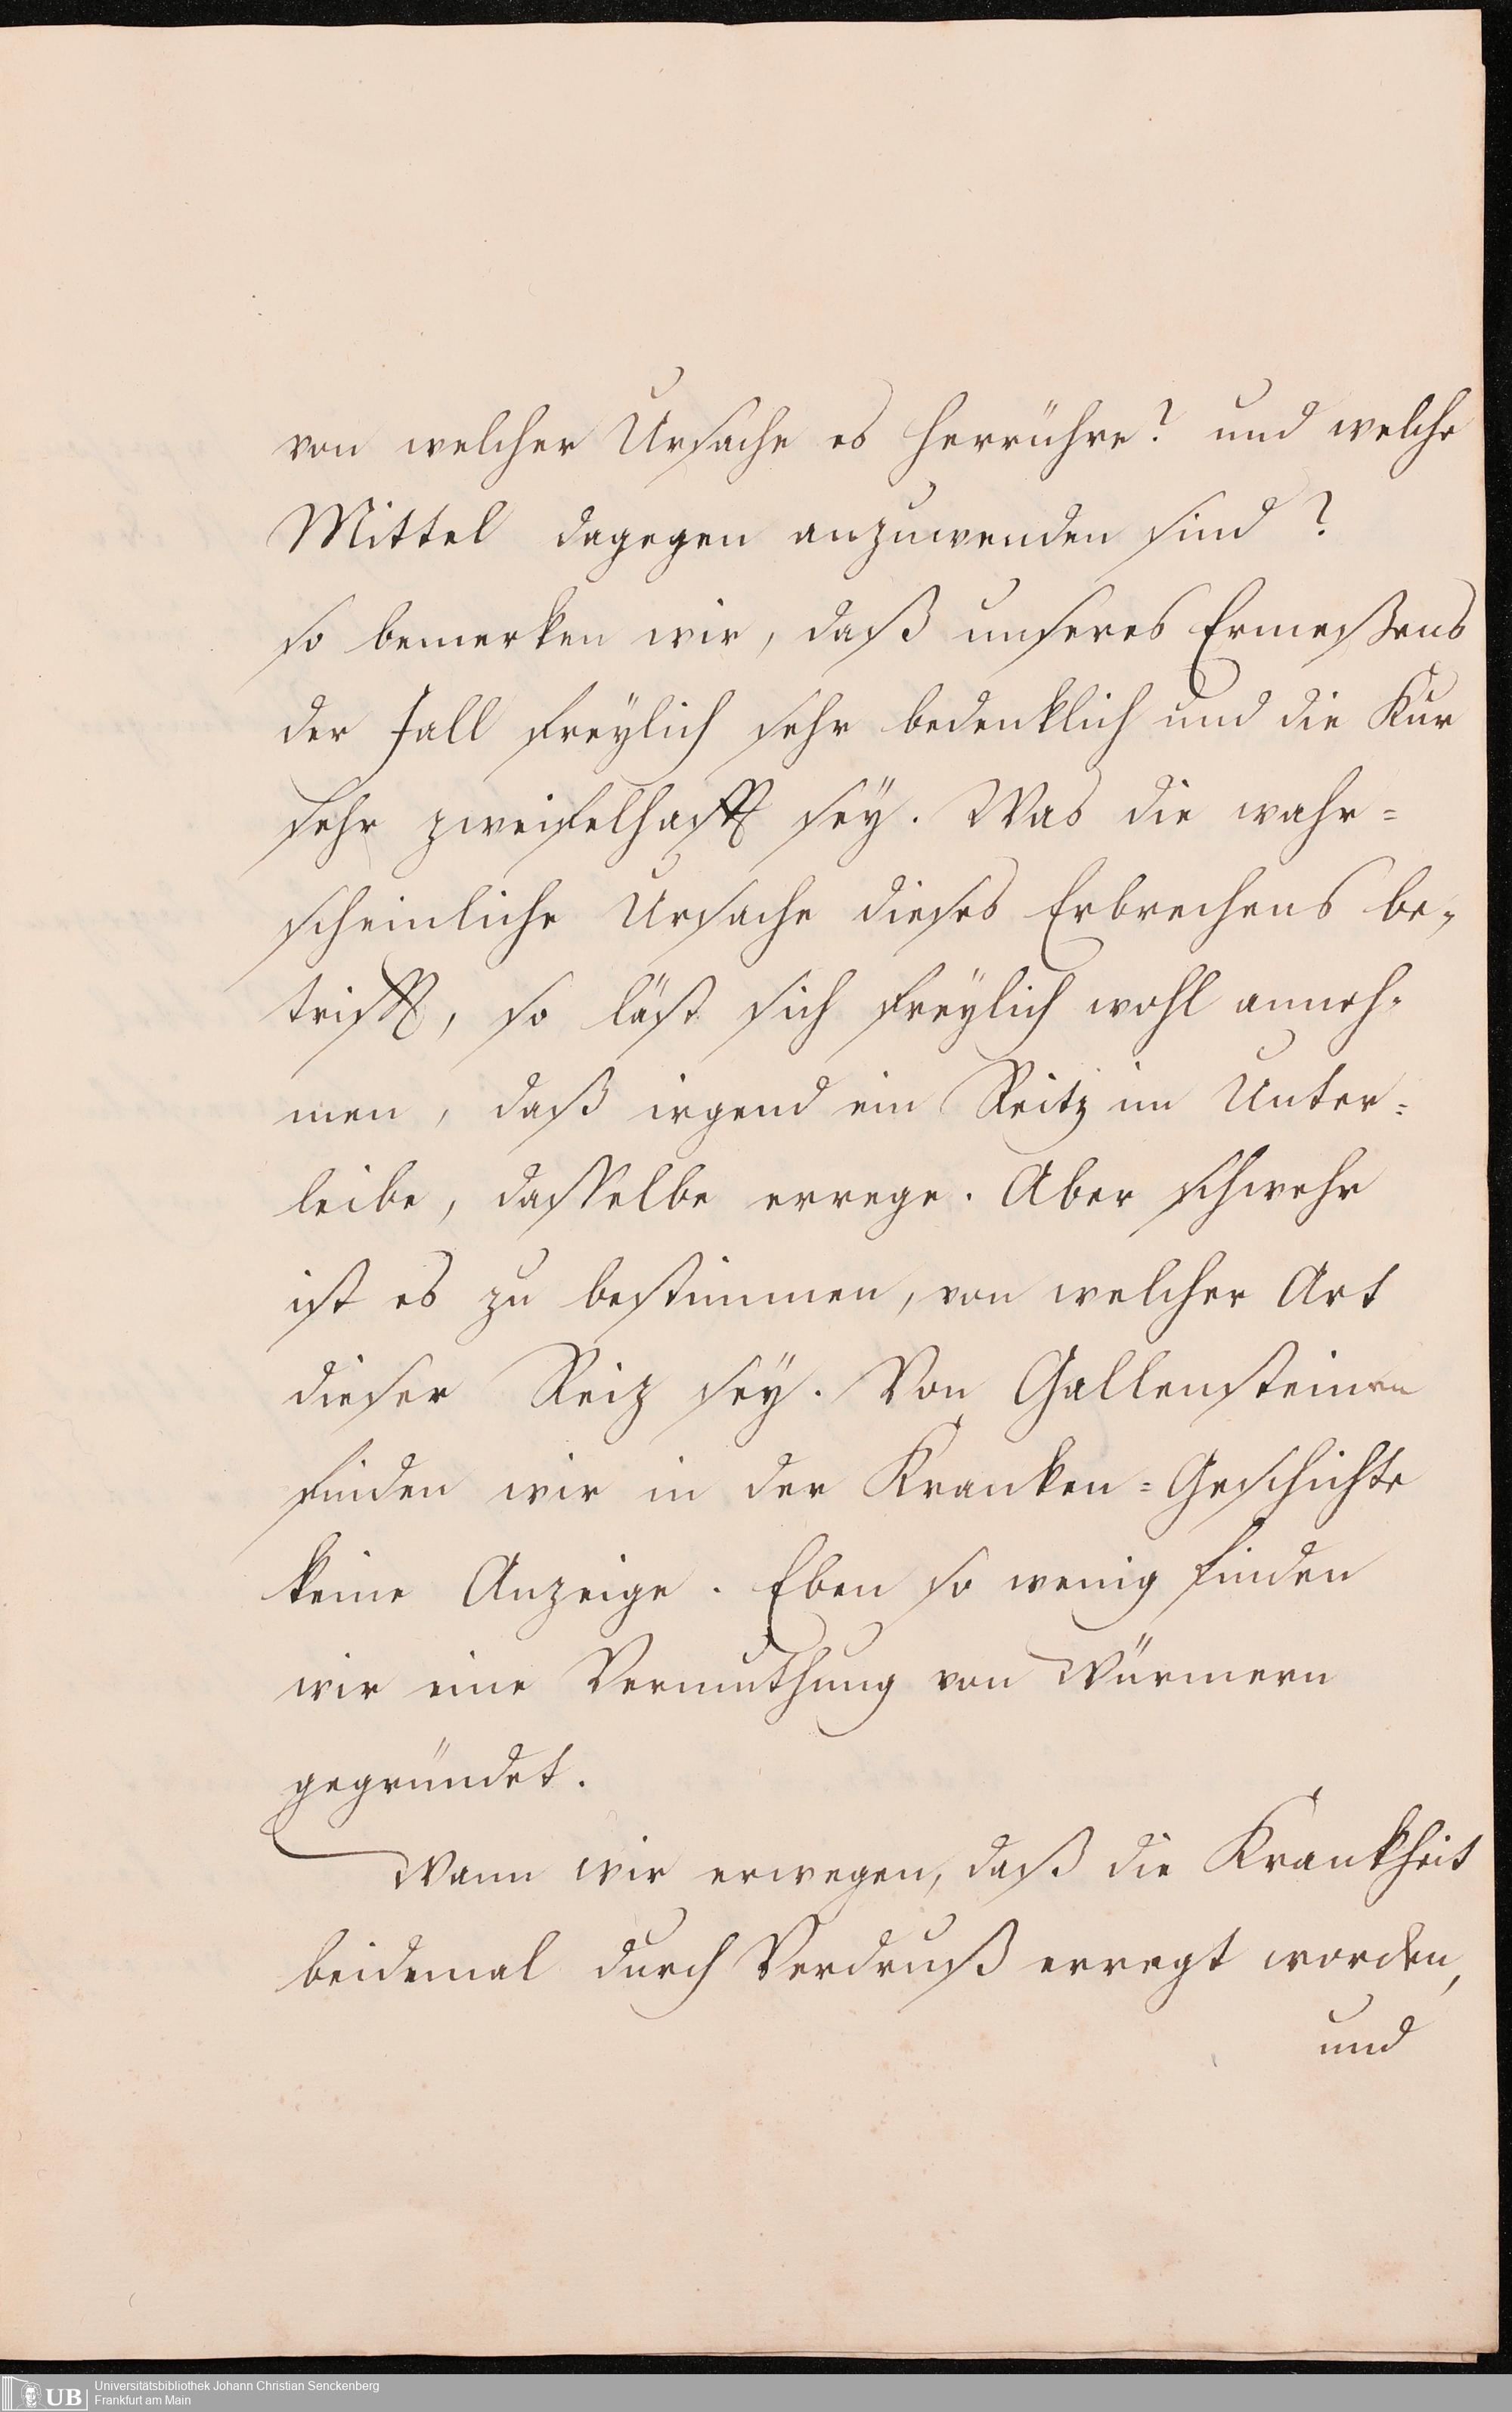 von welcher Ursache es herrühre? und welche
Mittel dagegen anzuwenden sind?
so bemerken wir, daß unseres Ermeßens
der Fall freÿlich sehr bedenklich und die Kur
sehr zweifelhafft seÿ. Was die wahr=
scheinliche Ursache dieses Erbrechens be=
trifft, so läst sich freÿlich wohl anneh=
men, daß irgend ein Reitz im Unter=
leibe, dasselbe errege. Aber schwehr
ist es zu bestimmen, von welcher Art
dieser Reiz seÿ. Von Gallensteinen
finden wir in der Kranken=Geschichte
keine Anzeige. Eben so wenig finden
wir eine Vermuthung von Würmern
gegründet.
Wann wir erwegen, daß die Krankheit
beidemal durch Verdruß erregt worden,
und
UB Universitätsbibliothek Johann Christian Senckenberg
Frankfurt am Main